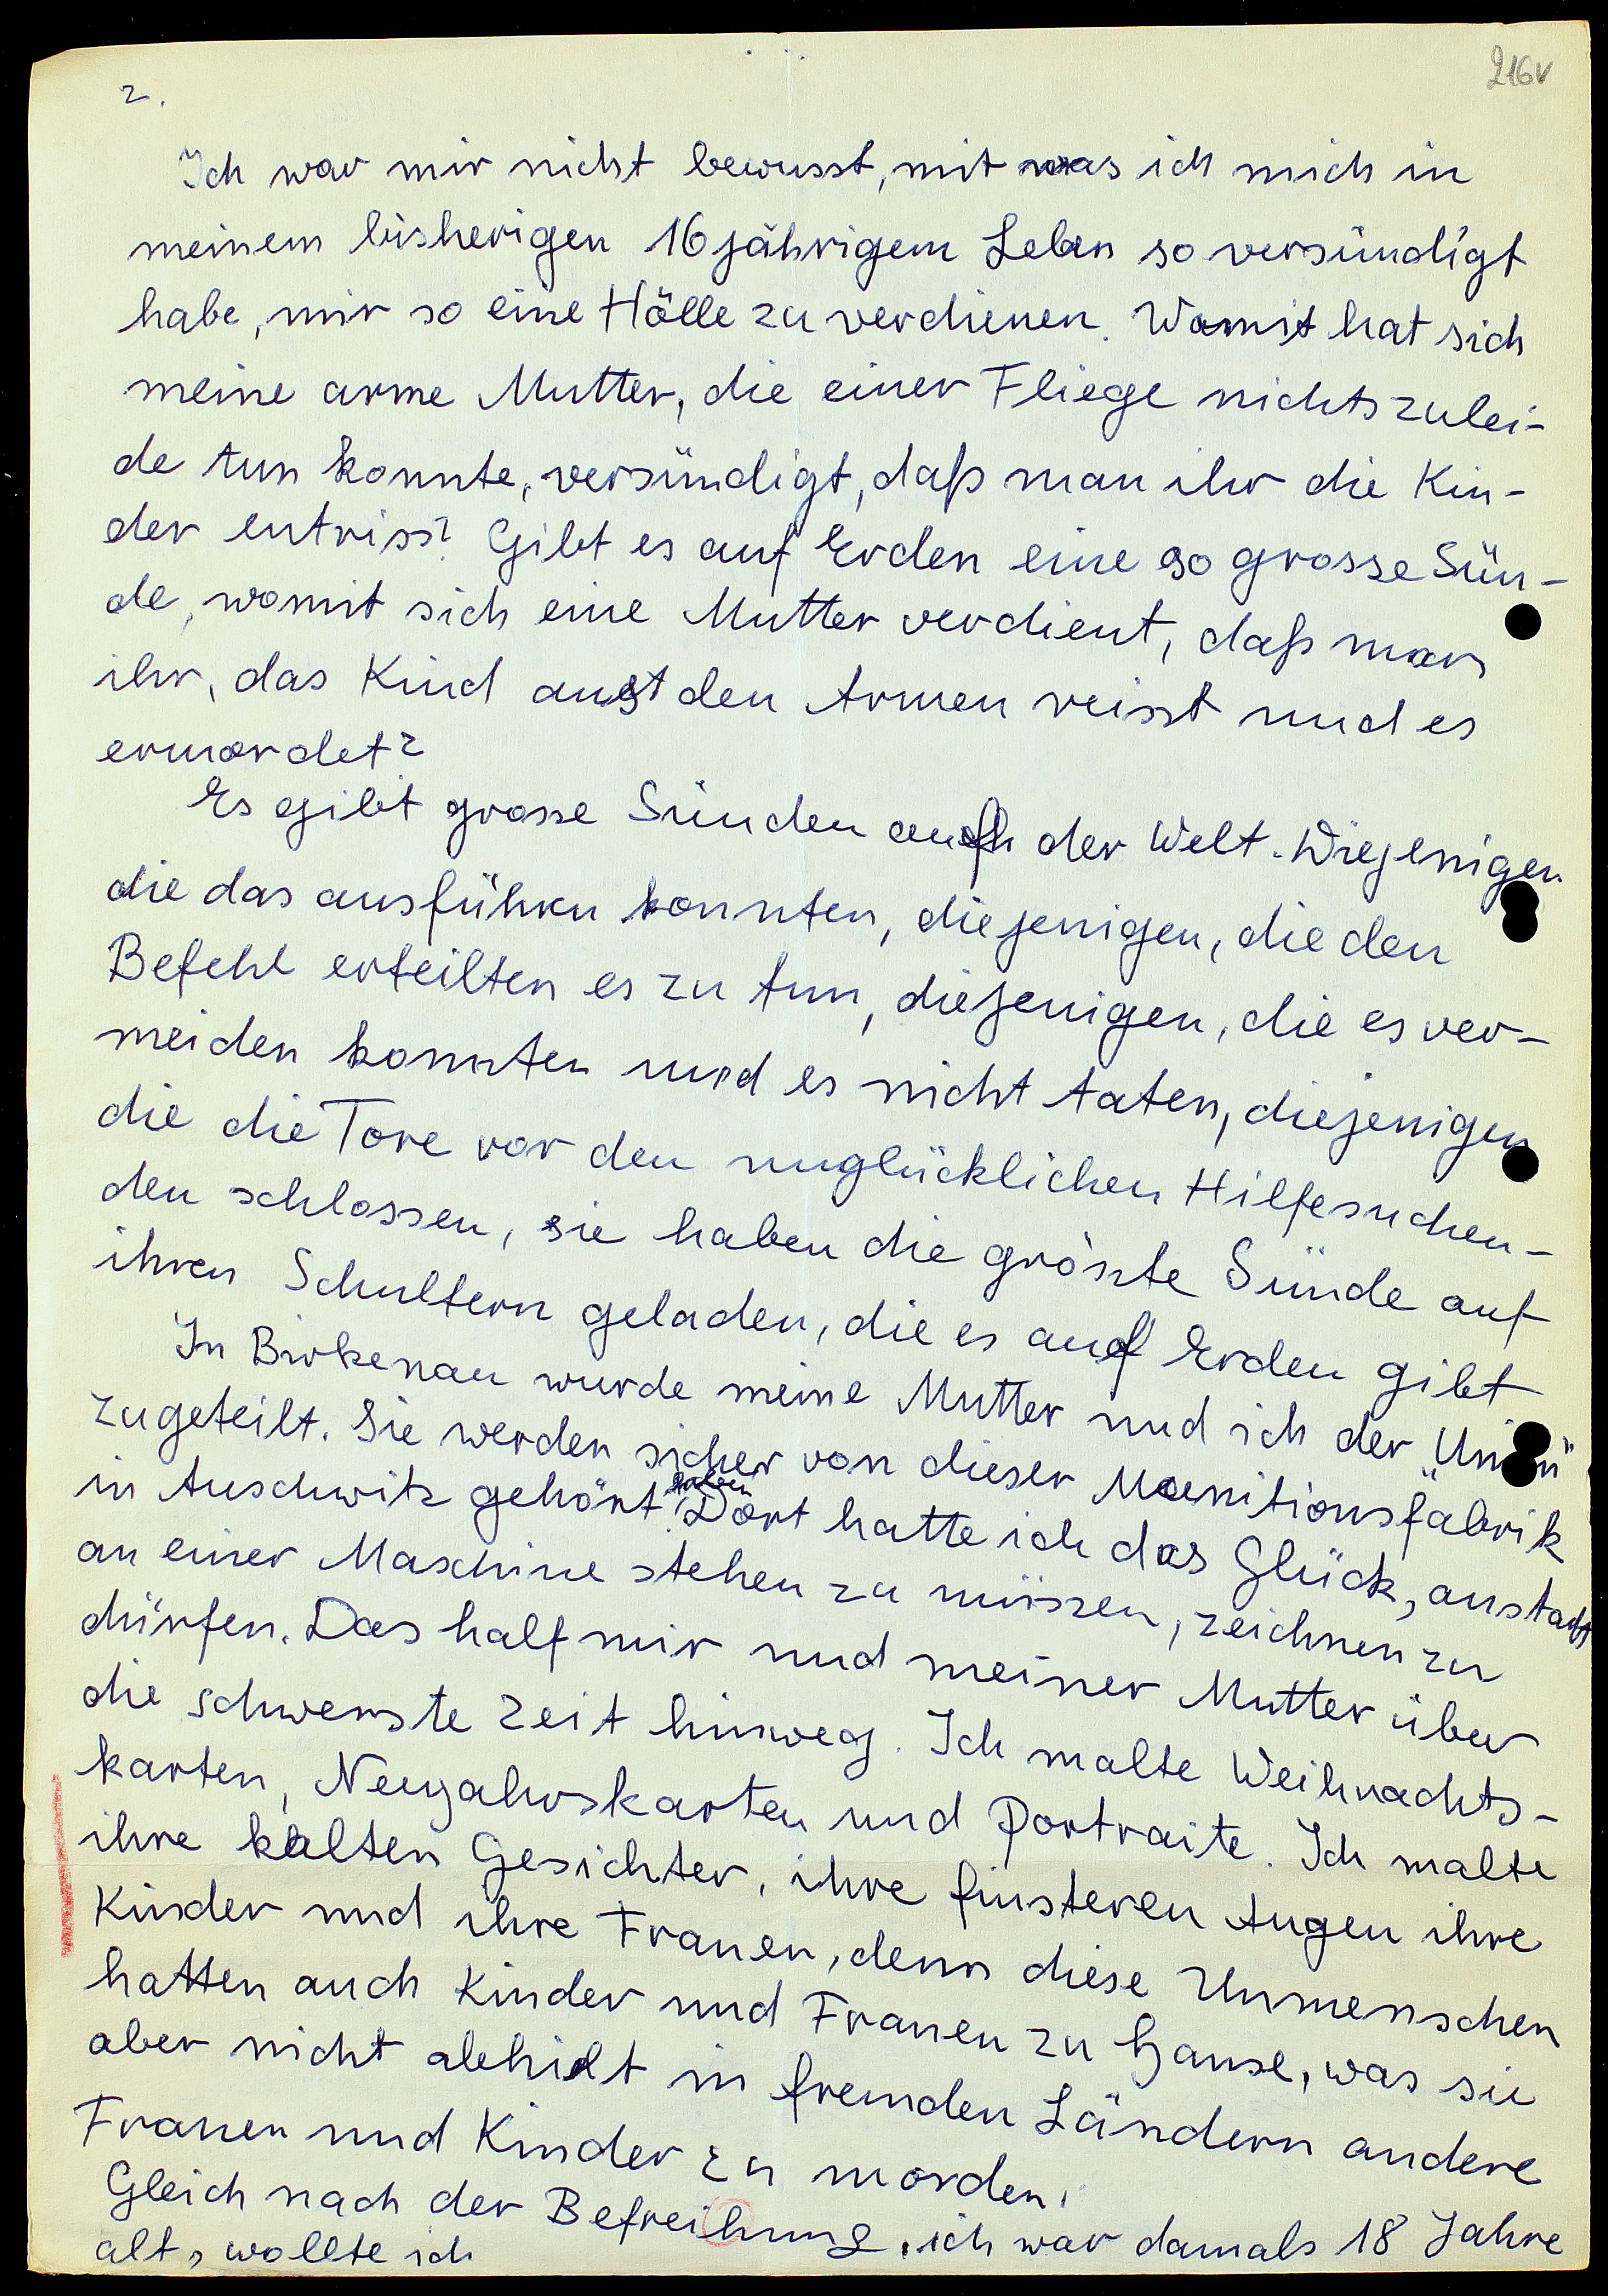 216v
2.
Ich war mir nicht bewusst, mit was ich mich in
meinem bisherigen 16 jährigem Leben so versündigt
habe, mir so eine Hölle zu verdienen. Womit hat sich
meine arme Mutter, die einer Fliege nichts zulei-
de tun konnte, versündigt, daß man ihr die Kin-
der entriss? Gibt es auf Erden eine so grosse Sün-
de, womit sich eine Mutter verdient, daß man
ihr, das Kind aus den Armen reisst und es
ermordet?
Es gibt grosse Sünden auf der Welt. Diejenigen
die das ausführen konnten, diejenigen, die den
Befehl erteilten es zu tun, diejenigen, die es ver-
meiden konnten und es nicht taten, diejenigen
die die Tore vor den unglücklichen Hilfesuchen-
den schlossen, sie haben die grösste Sünde auf
ihren Schultern geladen, die es auf Erden gibt
In Birkenau wurde meine Mutter und ich der "Union"
zugeteilt. Sie werden sicher von dieser Munitionsfabrik
in Auschwitz gehört haben. Dort hatte ich das Glück, anstatt
an einer Maschine stehen zu müssen, zeichnen zu
dürfen. Das half mir und meiner Mutter über
die schwerste Zeit hinweg. Ich malte Weihnachts-
karten, Neujahrskarten und Portraite. Ich malte
ihre kalten Gesichter, ihre finsteren Augen ihre
Kinder und ihre Frauen, denn diese Unmenschen
hatten auch Kinder und Frauen zu Hause, was sie
aber nicht abhielt in fremden Ländern andere
Frauen und Kinder zu morden.
Gleich nach der Befreihung, ich war damals 18 Jahre
alt, wollte ich